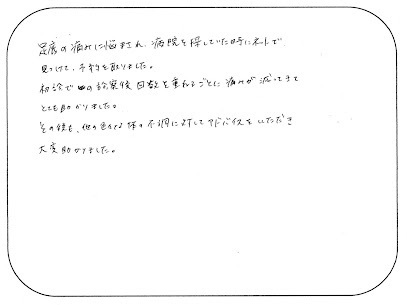 足底の痛みに悩まされ、病院を探していた時にネットで
見つけて、予約を取りました。
初診での診察後回数を重ねるごとに痛みが減ってきて
とても助かりました。
その後も、他の色々な体の不調に対してアドバイスをいただき
大変助かりました。